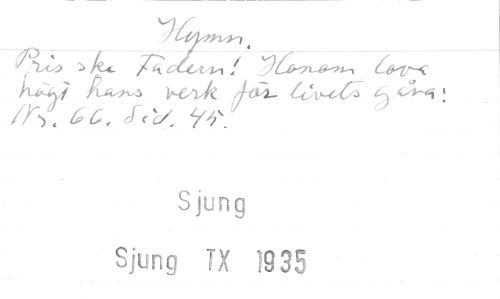 Hymn.
Pris ske Fadern! Honom lova
högt hans verk för livets gåva!
Nr. 66. Sid. 45.
Sjung
Sjung TX 1935